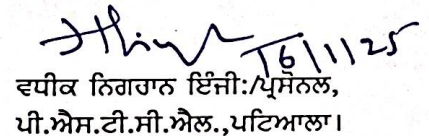 16/1/25
ਵਧੀਕ ਨਿਗਰਾਨ ਇੰਜੀ:/ਪ੍ਰਸੋਨਲ,
ਪੀ.ਐਸ.ਟੀ.ਸੀ.ਐਲ.,ਪਟਿਆਲਾ।